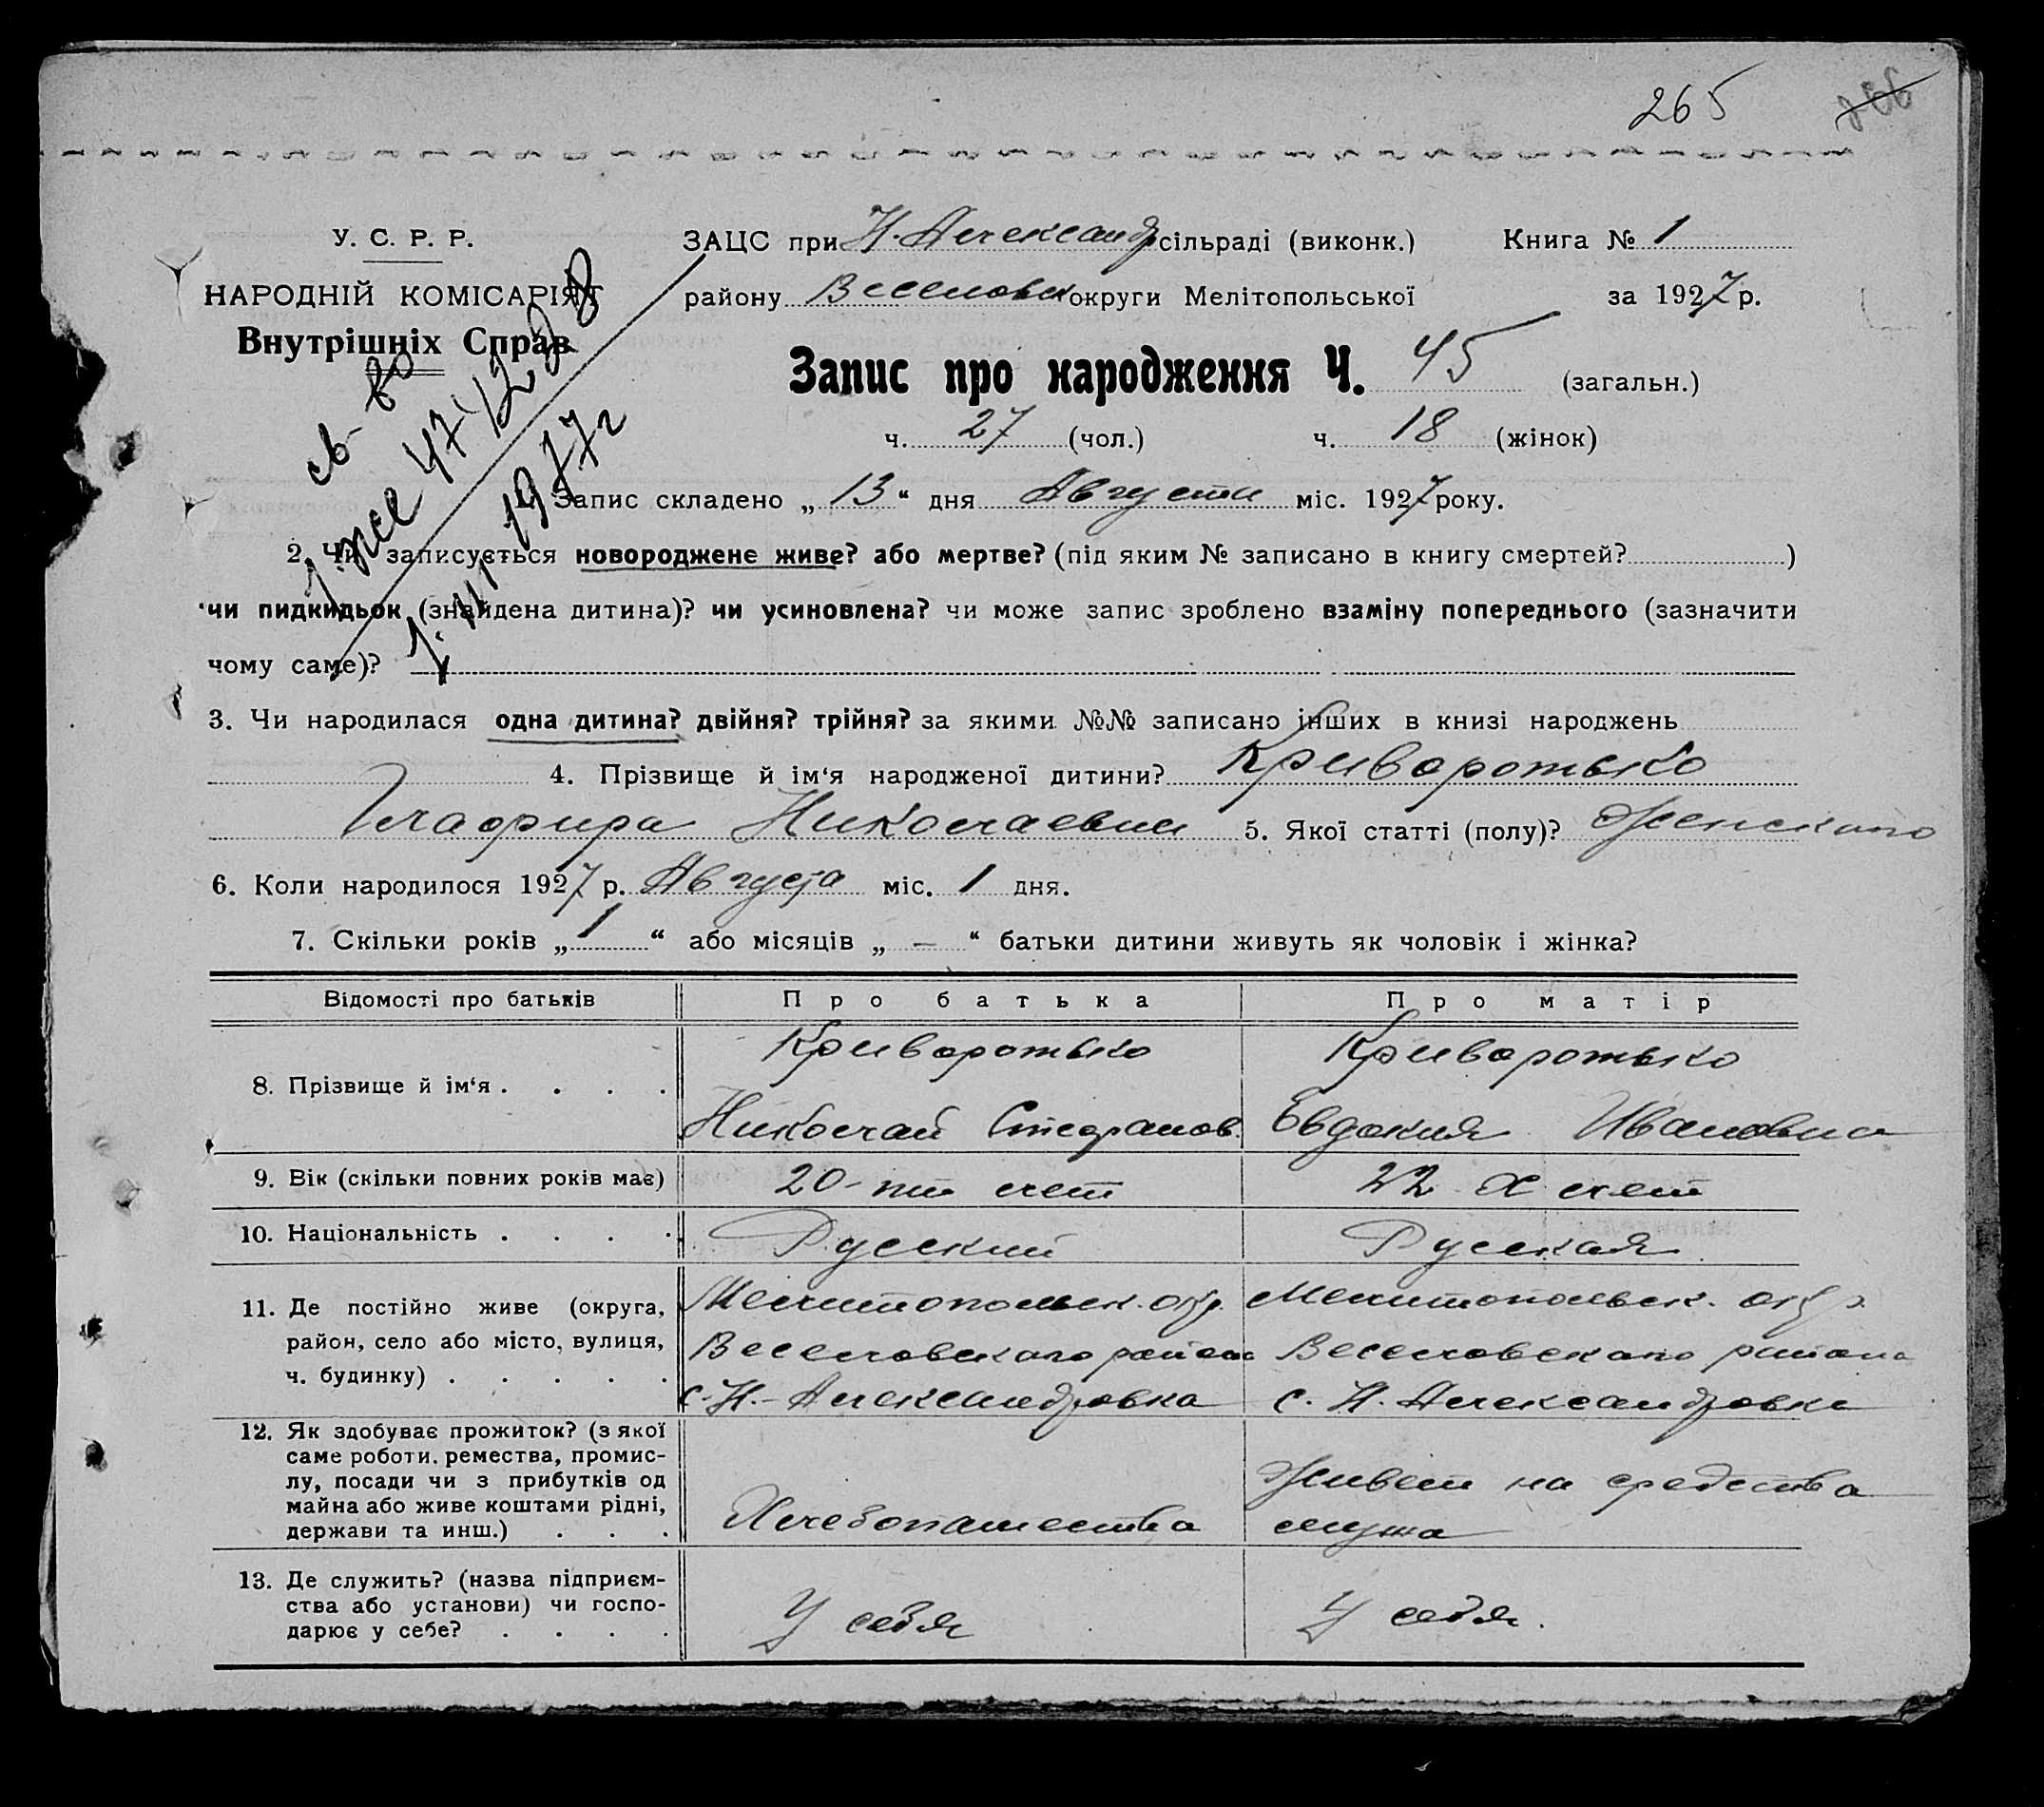 265
У. С. Р. Р.
НАРОДНІЙ КОМІСАРІЯТ
Внутрішніх Справ
св-во
1977г
ЗАЦС при Н. Александр сільраді (виконк.) Книга № 1
району Веселовск округи Мелітопольської за 1927 р.
Запис про народження Ч. 45 (загальн.)
ч. 27 (чол.) ч. 18 (жінок)
1. Запис складено „ 13 “ дня Августа міс. 1927 року.
2. Чи записується новороджене живе? або мертве? (під яким № записано в книгу смертей? )
чи пидкидьок (знайдена дитина)? чи усиновлена? чи може запис зроблено взаміну попереднього (зазначити
чому саме)?
3. Чи народилася одна дитина? двійня? трійня? за якими №№ записано інших в книзі народжень
4. Прізвище й ім‘я народженої дитини? Криворотько
Глафира Николаевна 5. Якої статті (полу)? Женскаго
6. Коли народилося 1927 р. Августа міс. 1 дня.
7. Скільки років „ 1 “ або місяців „ — “ батьки дитини живуть як чоловік і жінка?
Відомості про батьків Про батька Про матір
8. Прізвище й ім‘я . . . .
Криворотько
Николай Стефанов.
Криворотько
Евдокия Ивановна
9. Вік (скільки повних років має) 20-ти лет 22 х лет
10. Національність . . . . Русский Русская
11. Де постійно живе (округа,
район, село або місто, вулиця,
ч. будинку) . . . . .
Мелитопольск. окр.
Веселовскаго района
с. Н.-Александровка
Мелитопольск. окр.
Веселовскаго района
с. Н. Александровка
12. Як здобуває прожиток? (з якої
саме роботи. ремества, промис-
лу, посади чи з прибутків од
майна або живе коштами рідні,
держави та инш.) . . .
Хлебопашества
Живет на средства
мужа
13. Де служить? (назва підприєм-
ства або установи) чи госпо-
дарює у себе? . . . .
У себя
У себя.